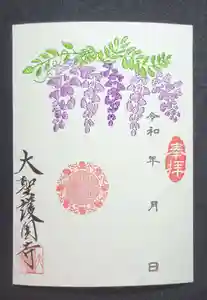 奉拝
令和 年 月 日
大聖護国寺